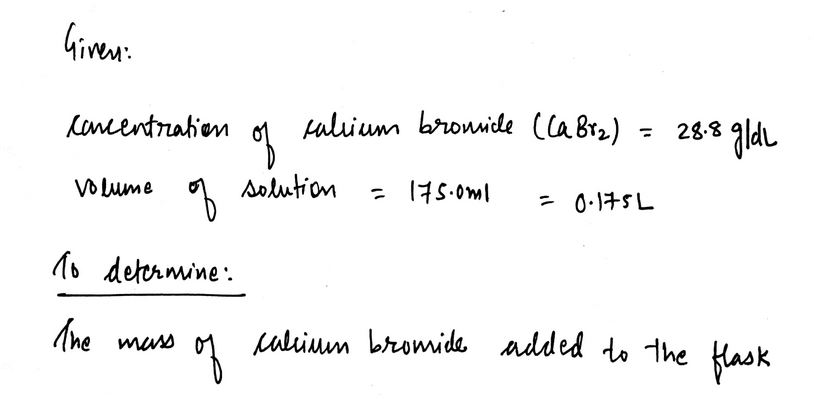 Given:
Concentration of calcium bromide (CaBr2) = 28.8 g/dL
Volume of solution = 175.0ml = 0.175L
To determine:
The mass of calcium bromide added to the flask